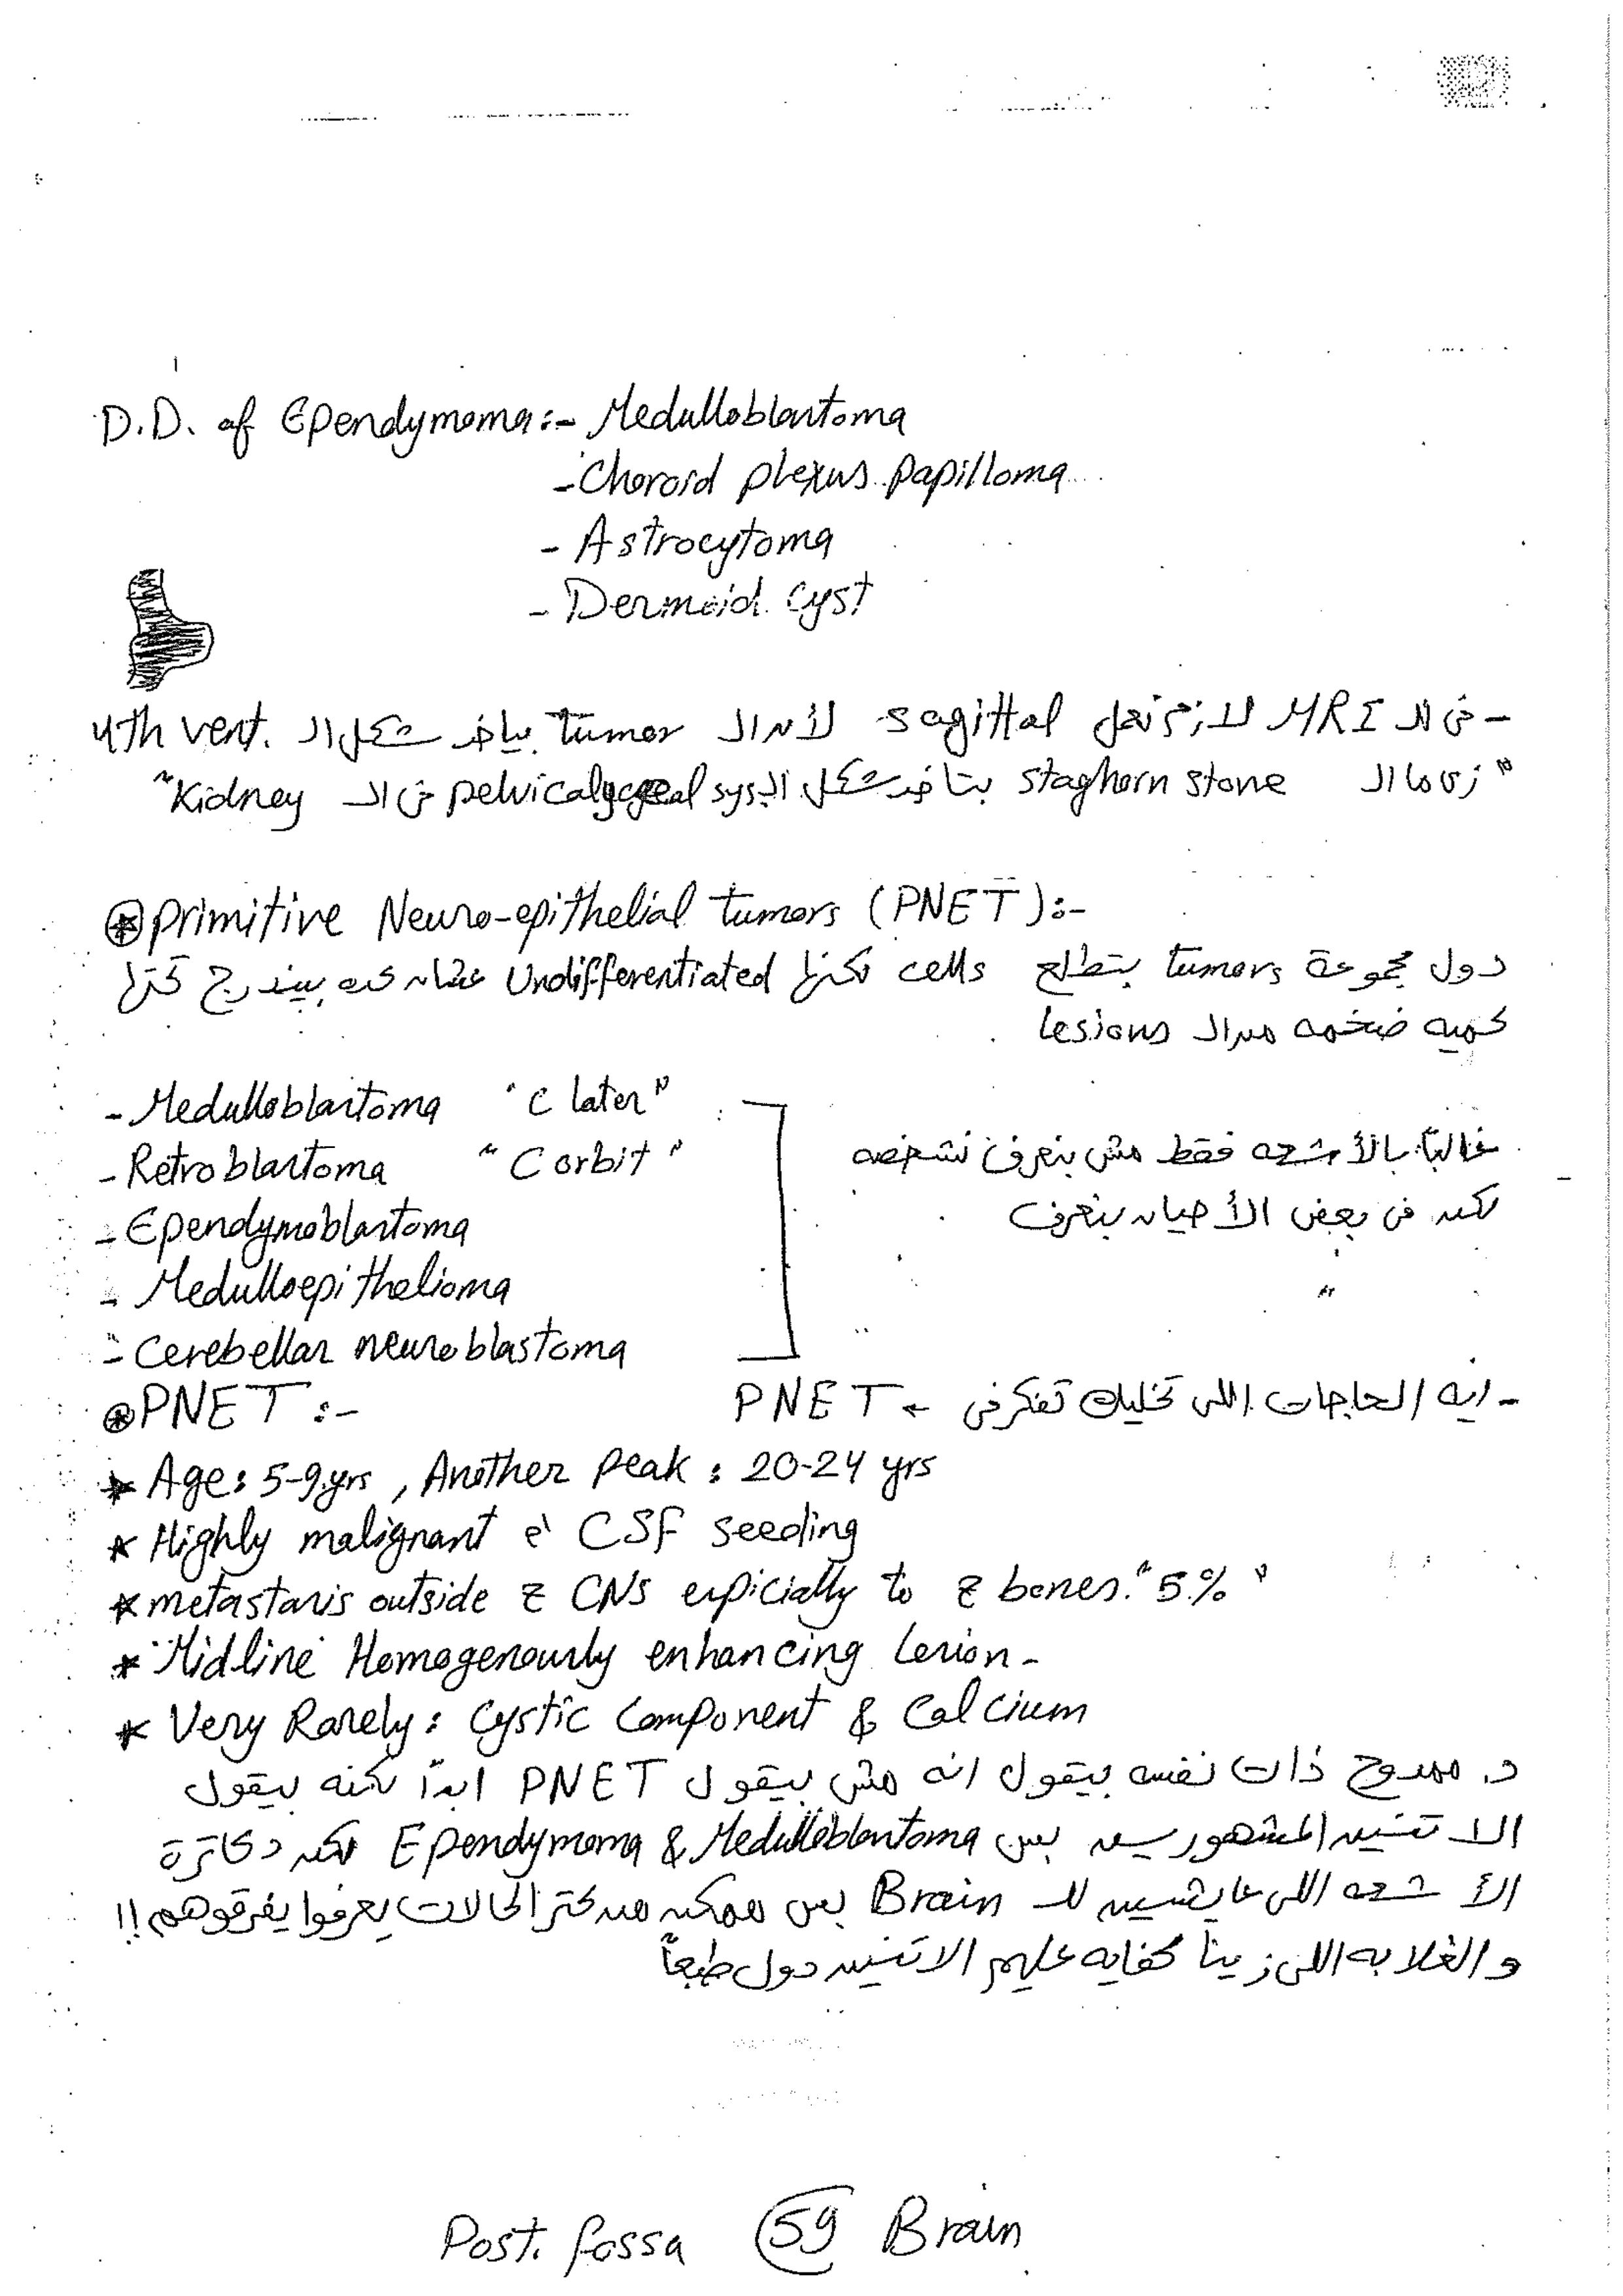 D.D. of Ependymoma:- Medulloblastoma
- Choroid plexus papilloma
- Astrocytoma
- Dermoid cyst
- فى الـ MRI لازم نعمل sagittal لأن الـ tumor بياخد شكل الـ 4th vent.
"زى ما الـ staghorn stone بتاخد شكل الـ pelvicalyceal sys. فى الـ Kidney"
⊛ Primitive Neuro-epithelial tumors (PNET):-
دول مجموعة tumors بتطلع cells لكنها Undifferentiated عشان كده بيندرج تحتها
كميه ضخمه من الـ lesions
- Medulloblastoma "C later"
- Retroblastoma "C orbit"
- Ependymoblastoma
- Medulloepithelioma
- Cerebellar neuroblastoma
غالباً بالأشعه فقط مش بنعرف نشخصه
لكن فى بعض الأحيان بنعرف
⊛ PNET:-
- ايه الحاجات اللى تخليك تفكر فى ← PNET
* Age: 5-9 yrs, Another Peak: 20-24 yrs
* Highly malignant c̄ CSF seeding
* metastasis outside z CNS espicially to z bones. "5%"
* Midline Homogenously enhancing Lesion -
* Very Rarely: Cystic Component & Calcium
د. ممدوح ذات نفسه بيقول انه مش بيقول PNET ابداً لكنه بيقول
الاتنين المشهورين بس Ependymoma & Medulloblastoma لكن دكاترة
الأشعه اللى عايشين للـ Brain بس ممكن من كتر الحالات يعرفوا يفرقوهم!!
و الغلابه اللى زينا كفايه عليهم الاتنين دول طبعاً
Post. fossa 59 Brain